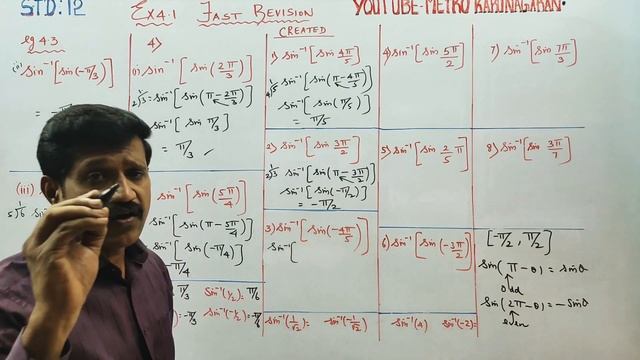 STD:12 EX4.1 FAST REVISION YOUTUBE-METRO KARUNAGARAN.
CREATED
eg 4.3
sin⁻¹[sin(-π/3)]
4)
(i) sin⁻¹[sin(2π/3)]
= sin⁻¹[sin(π-2π/3)]
sin⁻¹[sin π/3]
= π/3
(iii)
sin⁻¹[sin(5π/4)]
sin⁻¹[sin(π-5π/4)]
sin⁻¹[sin(-π/4)]
-π/4
π/3 sin⁻¹(1/2)= π/6
=-π/3 sin⁻¹(-1/2)=-π/6
1) sin⁻¹[sin 4π/5]
sin⁻¹[sin(π-4π/5)]
sin⁻¹[sin(π/5)]
= π/5
2) sin⁻¹[sin 3π/2]
sin⁻¹[sin(π-3π/2)]
sin⁻¹[sin(-π/2)]
= -π/2
3) sin⁻¹[sin(-4π/5)]
sin⁻¹[
sin⁻¹(1/√2)= sin⁻¹(-1/√2)=
4) sin⁻¹[sin 5π/2]
5) sin⁻¹[sin 2/5 π]
6) sin⁻¹[sin(-3π/2)]
sin⁻¹(2)= sin⁻¹(-2)=
7) sin⁻¹[sin 7π/3]
8) sin⁻¹[sin 3π/7]
[-π/2, π/2]
sin(π-θ)= sinθ
odd
sin(2π-θ)= -sinθ
even